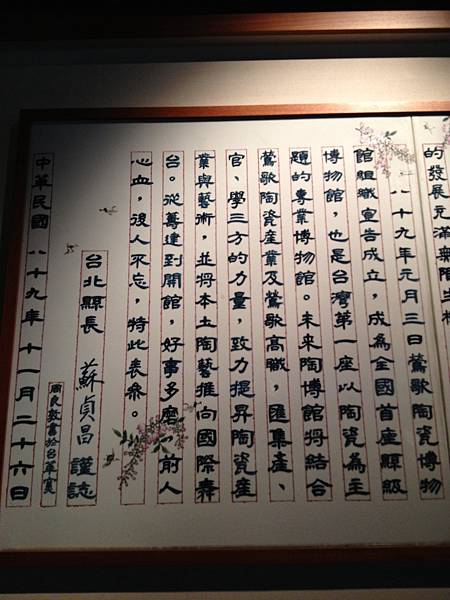 的發展充滿無限生機
八十九年元月三日鶯歌陶瓷博物
館組織宣告成立，成為全國首座縣級
博物館，也是台灣第一座以陶瓷為主
題的專業博物館。未來陶博館將結合
鶯歌陶瓷產業及鶯歌高職，匯集產、
官、學三方的力量，致力提昇陶瓷產
業與藝術，並將本土陶藝推向國際舞
台。從籌建到開館，好事多磨，前人
心血，後人不忘，特此表彰。
台北縣長 蘇貞昌 謹誌
中華民國 八十九年 十一月二十六日